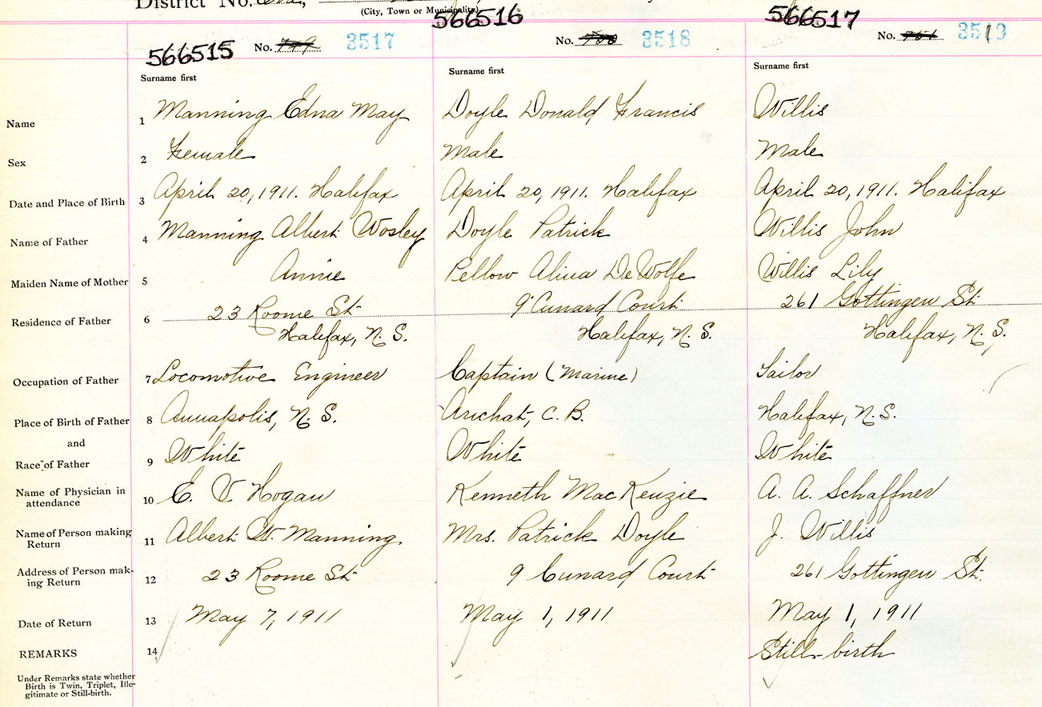 District No.
(City, Town or Municipality)
566515 566516 566517
No. 3517 No. 3518 No. 3519
Surname first Surname first Surname first
Name 1 Manning Edna May Doyle Donald Francis Willis
Sex 2 Female Male Male
Date and Place of Birth 3 April 20, 1911. Halifax April 20, 1911. Halifax April 20, 1911. Halifax
Name of Father 4 Manning Albert Wosley Doyle Patrick Willis John
Maiden Name of Mother 5 Annie Pellow Alina DeWolfe Willis Lily
Residence of Father 6 23 Roome St 9 Cunard Court 261 Gottingen St.
Halifax, N.S. Halifax, N.S. Halifax, N.S.
Occupation of Father 7 Locomotive Engineer Captain (Marine) Sailor
Place of Birth of Father 8 Annapolis, N.S. Arichat, C.B. Halifax, N.S.
and
Race of Father 9 White White White
Name of Physician in
attendance 10 E. V. Hogan Kenneth MacKenzie A. A. Schaffner
Name of Person making
Return 11 Albert W. Manning. Mrs. Patrick Doyle J. Willis
Address of Person mak-
ing Return 12 23 Roome St. 9 Cunard Court 261 Gottingen St.
Date of Return 13 May 7, 1911 May 1, 1911 May 1, 1911
REMARKS 14 Still-birth
Under Remarks state whether
Birth is Twin, Triplet, Ille-
gitimate or Still-birth.